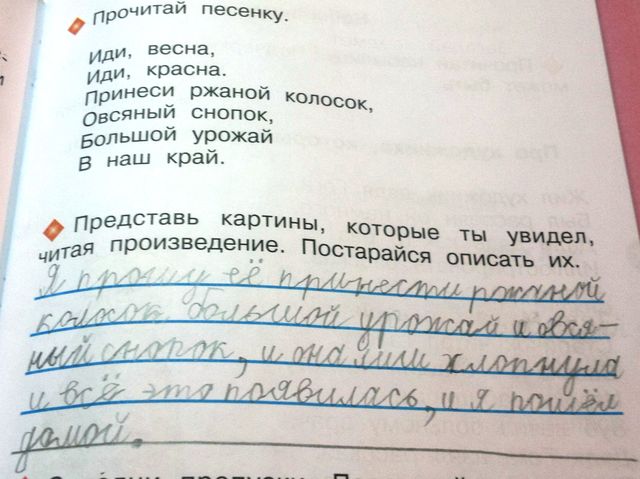 Прочитай песенку.
Иди, весна,
Иди, красна.
Принеси ржаной колосок,
Овсяный снопок,
Большой урожай
В наш край.
Представь картины, которые ты увидел,
читая произведение. Постарайся описать их.
Я прошу её принести ржаной
колосок большой урожай и овся-
ный снопок, и она хлопнула
и всё это появилась, и я пошёл
домой.